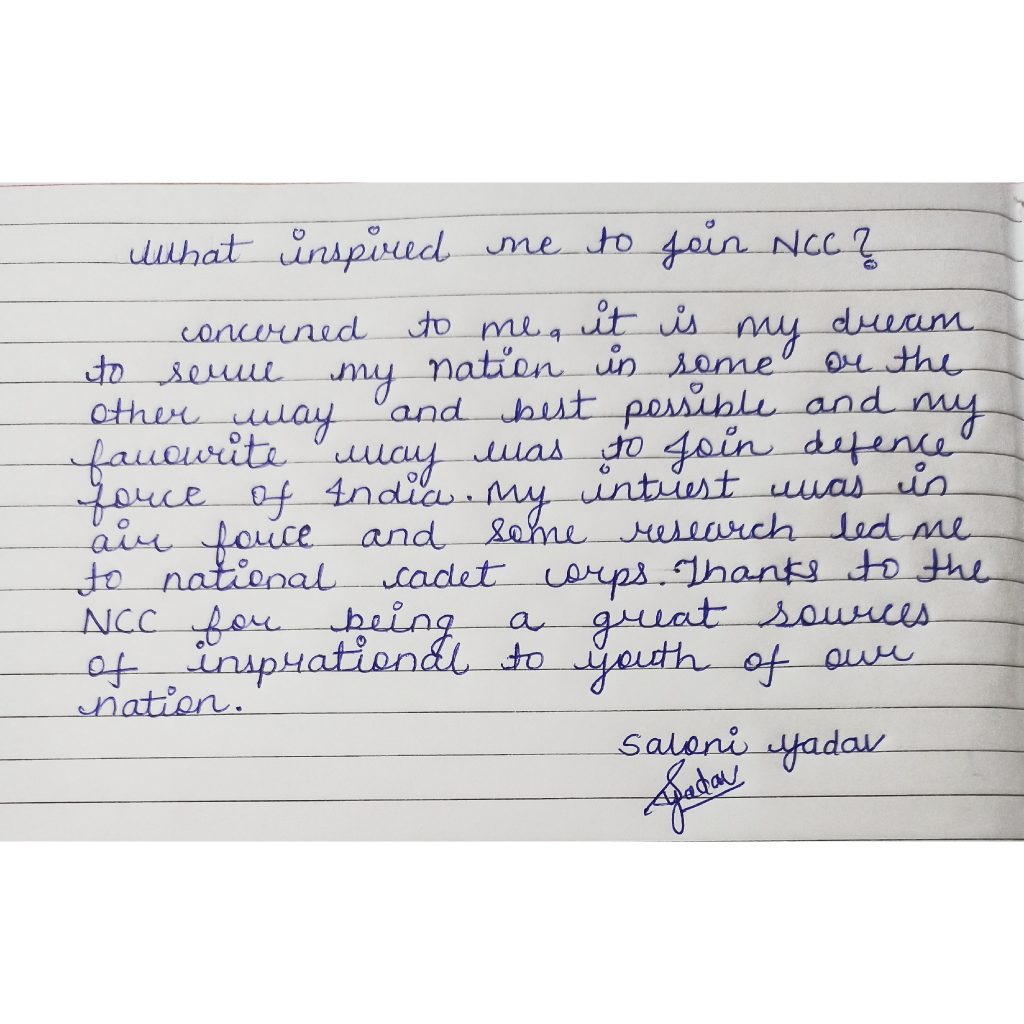 What inspired me to join NCC?
concerned to me, it is my dream
to serve my nation in some or the
other way and best possible and my
favourite way was to join defence
force of India. My intrest was in
air force and some research led me
to national cadet corps. Thanks to the
NCC for being a great sources
of insprational to youth of our
nation.
Saloni Yadav
Syadav